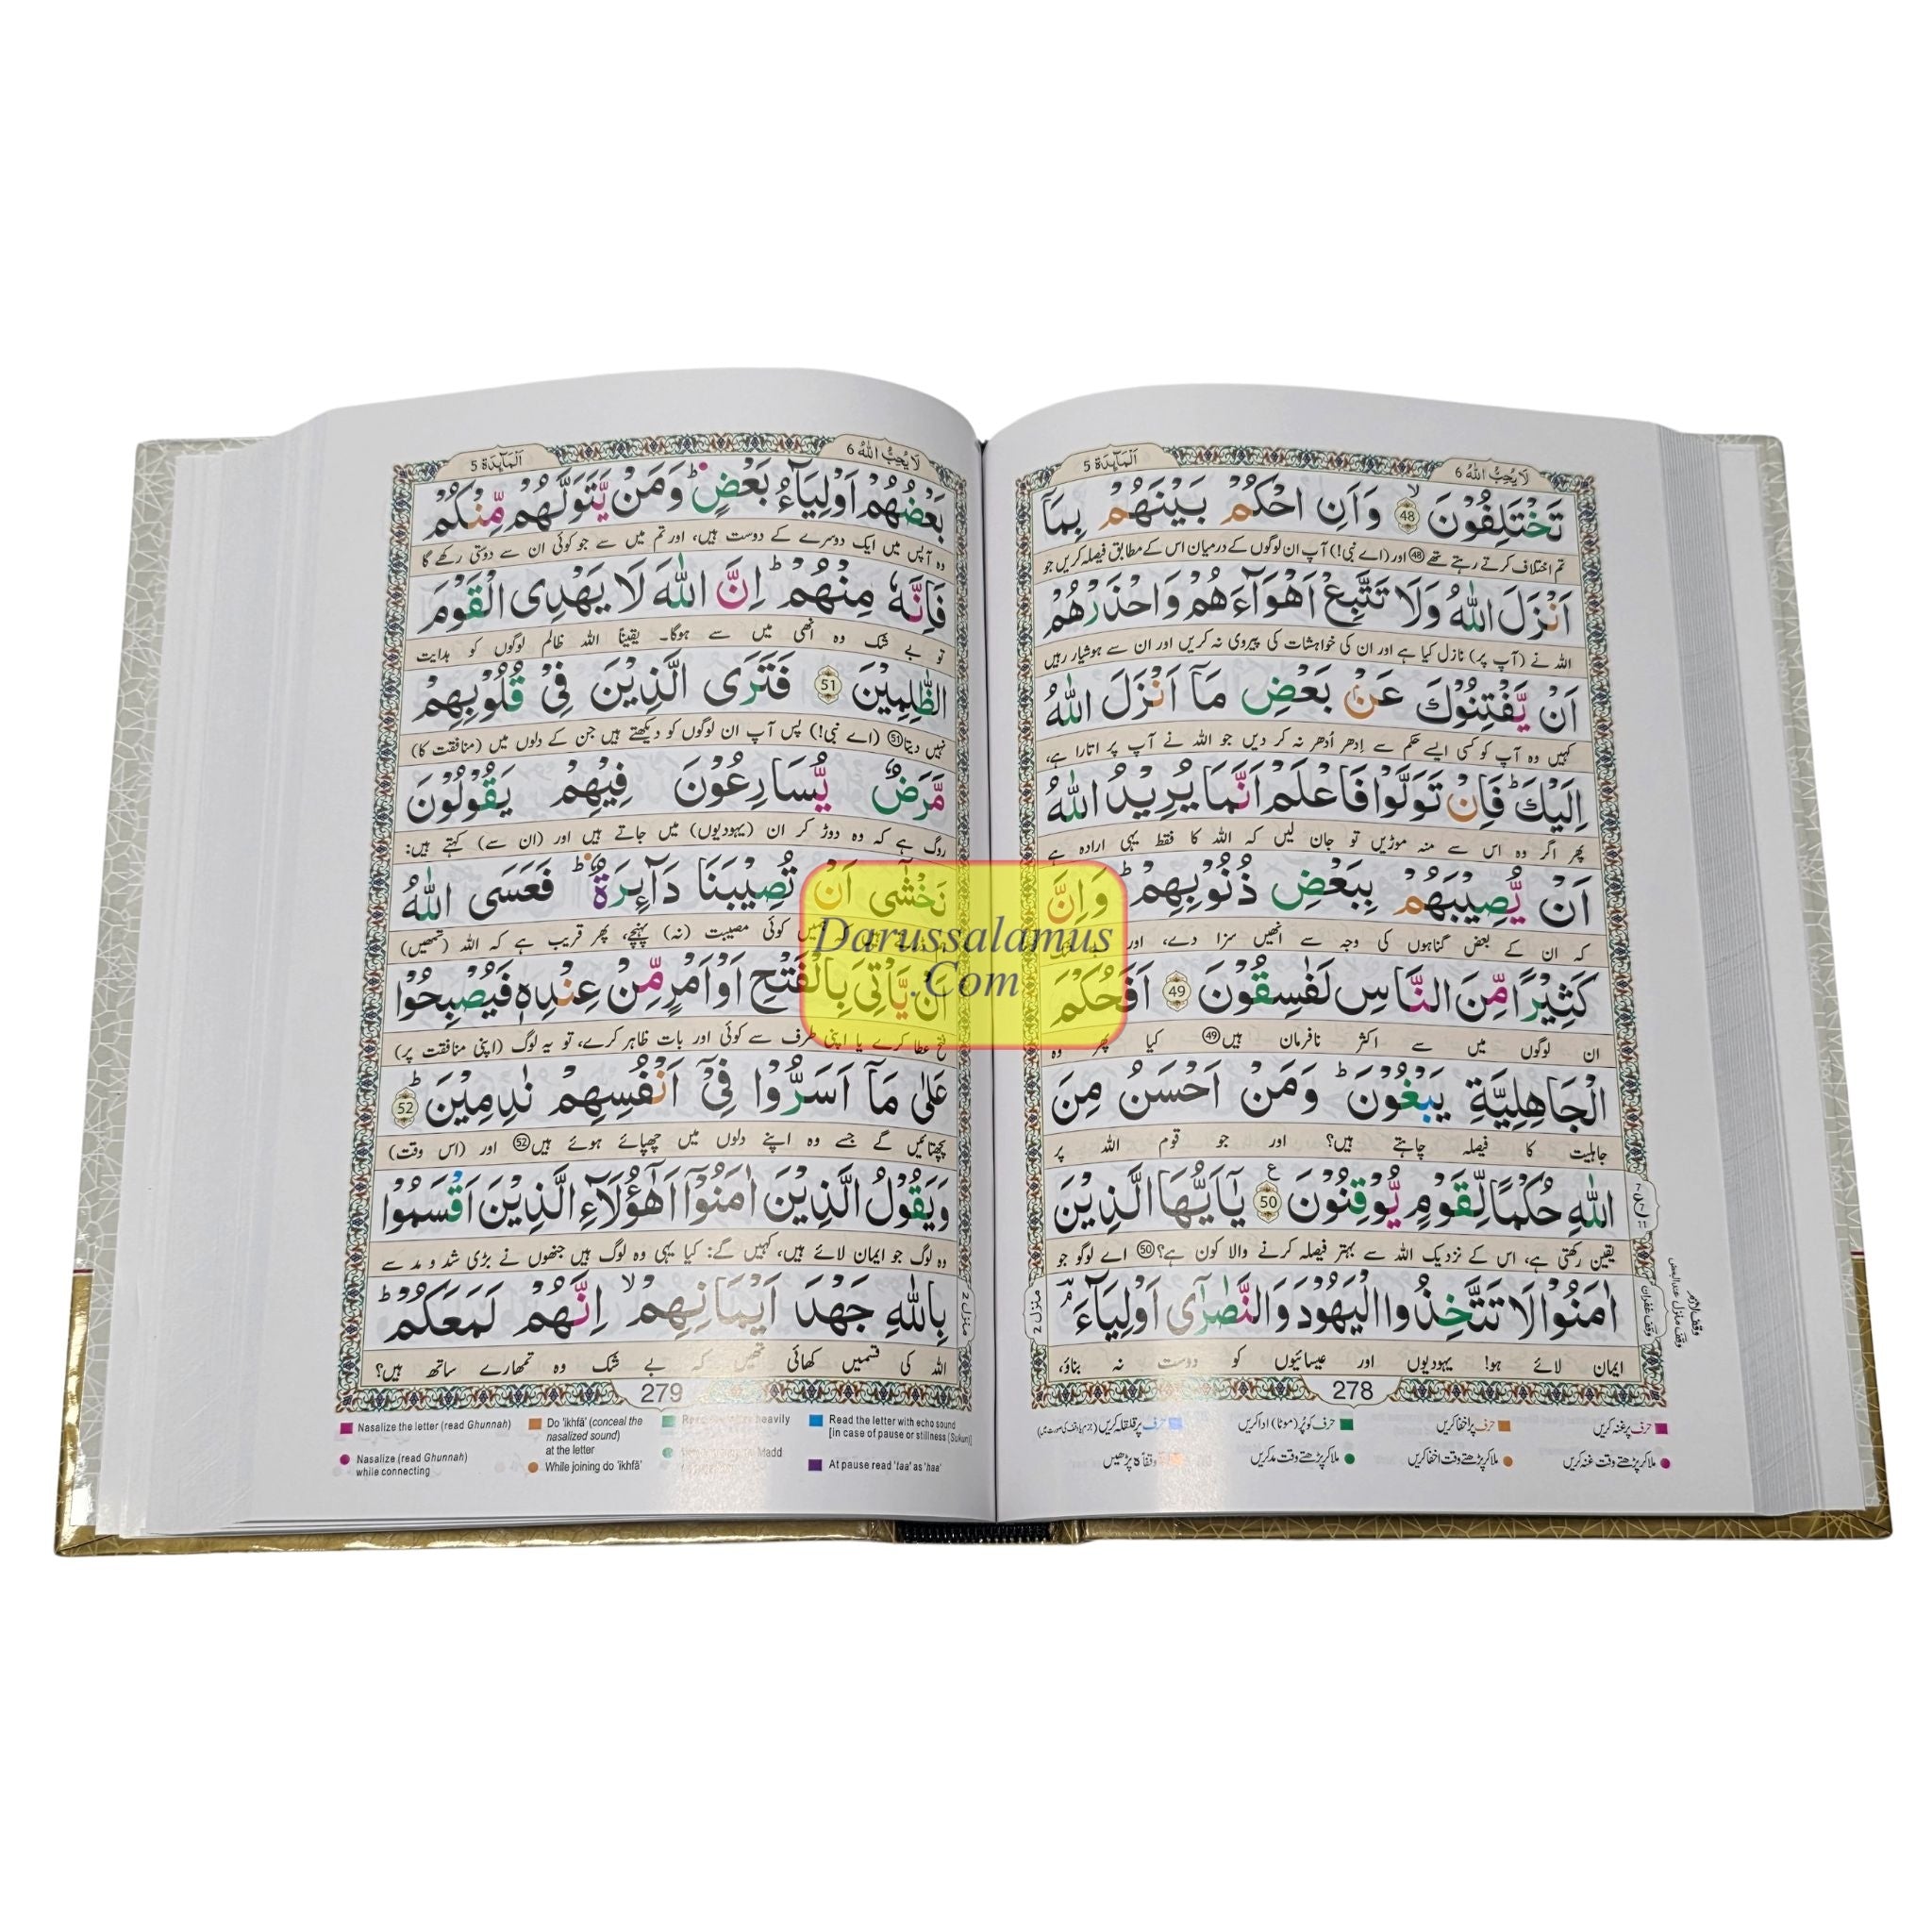 لَا يُحِبُّ اللهُ 6
اَلْمَآىِٕدَة 5
تَخْتَلِفُوْنَ 48 وَاَنِ احْكُمْ بَيْنَهُمْ بِمَاۤ
تم اختلاف کرتے رہتے تھے 48 اور (اے نبی!) آپ ان لوگوں کے درمیان اس کے مطابق فیصلہ کریں جو
اَنْزَلَ اللّٰهُ وَلَا تَتَّبِعْ اَهْوَآءَهُمْ وَاحْذَرْهُمْ
اللہ نے (آپ پر) نازل کیا ہے اور ان کی خواہشات کی پیروی نہ کریں اور ان سے ہوشیار رہیں
اَنْ يَّفْتِنُوْكَ عَنْۢ بَعْضِ مَاۤ اَنْزَلَ اللّٰهُ
کہیں وہ آپ کو کسی ایسے حکم سے اِدھر اُدھر نہ کر دیں جو اللہ نے آپ پر اتارا ہے،
اِلَيْكَ ؕ فَاِنْ تَوَلَّوْا فَاعْلَمْ اَنَّمَا يُرِيْدُ اللّٰهُ
پھر اگر وہ اس سے منہ موڑیں تو جان لیں کہ اللہ کا فقط یہی ارادہ ہے
اَنْ يُّصِيْبَهُمْ بِبَعْضِ ذُنُوْبِهِمْ ؕ وَاِنَّ
کہ ان کے بعض گناہوں کی وجہ سے انھیں سزا دے، اور
كَثِيْرًا مِّنَ النَّاسِ لَفٰسِقُوْنَ 49 اَفَحُكْمَ
ان لوگوں میں سے اکثر نافرمان ہیں 49 کیا پھر وہ
الْجَاهِلِيَّةِ يَبْغُوْنَ ؕ وَمَنْ اَحْسَنُ مِنَ
جاہلیت کا فیصلہ چاہتے ہیں؟ اور جو قوم اللہ پر
اللّٰهِ حُكْمًا لِّقَوْمٍ يُّوْقِنُوْنَ 50 ع يٰۤاَيُّهَا الَّذِيْنَ
یقین رکھتی ہے، اس کے نزدیک اللہ سے بہتر فیصلہ کرنے والا کون ہے؟ 50 اے لوگو جو
اٰمَنُوْا لَا تَتَّخِذُوا الْيَهُوْدَ وَالنَّصٰرٰۤى اَوْلِيَآءَ ۘ
ایمان لائے ہو! یہودیوں اور عیسائیوں کو دوست نہ بناؤ،
منزل 2
وقف لازم
وقف غفران
278
حرف پر غنہ کریں
حرف پر اخفا کریں
حرف کو پُر (موٹا) ادا کریں
حرف پر قلقلہ کریں
ملا کر پڑھتے وقت غنہ کریں
ملا کر پڑھتے وقت اخفا کریں
ملا کر پڑھتے وقت مد کریں
لَا يُحِبُّ اللهُ 6
اَلْمَآىِٕدَة 5
بَعْضُهُمْ اَوْلِيَآءُ بَعْضٍ ؕ وَمَنْ يَّتَوَلَّهُمْ مِّنْكُمْ
وہ آپس میں ایک دوسرے کے دوست ہیں، اور تم میں سے جو کوئی ان سے دوستی رکھے گا
فَاِنَّهٗ مِنْهُمْ ؕ اِنَّ اللّٰهَ لَا يَهْدِى الْقَوْمَ
تو بے شک وہ انھی میں سے ہوگا۔ یقینًا اللہ ظالم لوگوں کو ہدایت
الظّٰلِمِيْنَ 51 فَتَرَى الَّذِيْنَ فِىْ قُلُوْبِهِمْ
نہیں دیتا 51 (اے نبی!) پس آپ ان لوگوں کو دیکھتے ہیں جن کے دلوں میں (منافقت کا)
مَّرَضٌ يُّسَارِعُوْنَ فِيْهِمْ يَقُوْلُوْنَ
روگ ہے کہ وہ دوڑ کر ان (یہودیوں) میں جاتے ہیں اور (ان سے) کہتے ہیں:
نَخْشٰٓى اَنْ تُصِيْبَنَا دَآىِٕرَةٌ ؕ فَعَسَى اللّٰهُ
کوئی مصیبت (نہ) پہنچے، پھر قریب ہے کہ اللہ (تمھیں)
اَنْ يَّاْتِىَ بِالْفَتْحِ اَوْ اَمْرٍ مِّنْ عِنْدِهٖ فَيُصْبِحُوْا
فتح عطا کرے یا اپنی طرف سے کوئی اور بات ظاہر کرے، تو یہ لوگ (اپنی منافقت پر)
عَلٰى مَاۤ اَسَرُّوْا فِىْۤ اَنْفُسِهِمْ نٰدِمِيْنَ ؕ 52
پچھتائیں گے جسے وہ اپنے دلوں میں چھپائے ہوئے ہیں 52 اور (اس وقت)
وَيَقُوْلُ الَّذِيْنَ اٰمَنُوْۤا اَهٰۤؤُلَآءِ الَّذِيْنَ اَقْسَمُوْا
وہ لوگ جو ایمان لائے ہیں، کہیں گے: کیا یہی وہ لوگ ہیں جنھوں نے بڑی شد و مد سے
بِاللّٰهِ جَهْدَ اَيْمَانِهِمْ ۙ اِنَّهُمْ لَمَعَكُمْ ؕ
اللہ کی قسمیں کھائی تھیں کہ بے شک وہ تمھارے ساتھ ہیں؟
منزل 2
279
Nasalize the letter (read Ghunnah)
Nasalize (read Ghunnah)
while connecting
Do 'ikhfā' (conceal the
nasalized sound)
at the letter
While joining do 'ikhfā'
heavily
Madd
Read the letter with echo sound
[in case of pause or stillness (Sukun)]
At pause read 'taa' as 'haa'
Darussalamus
.Com